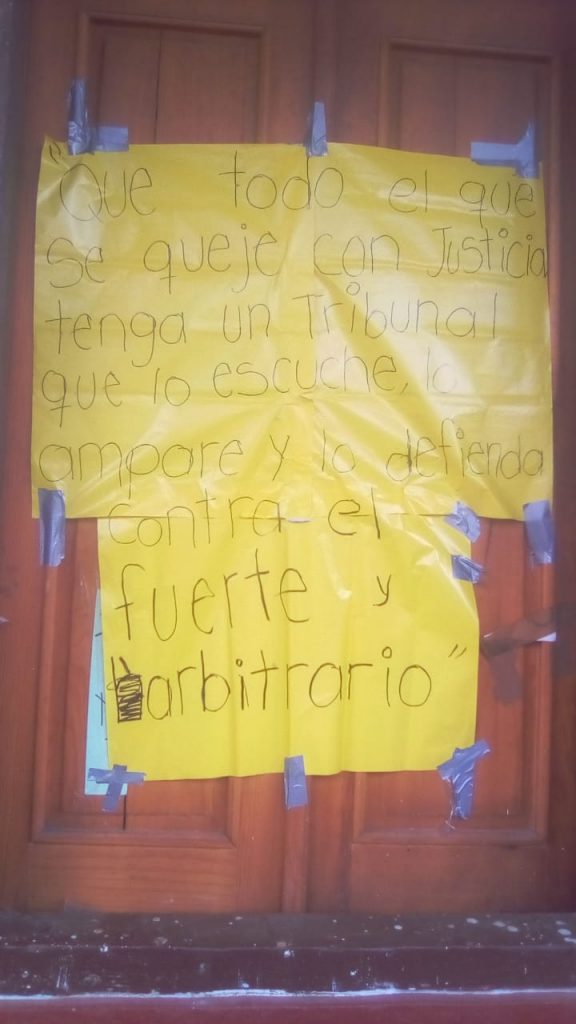 "Que todo el que
se queje con Justicia
tenga un Tribunal
que lo escuche, lo
ampare y lo defienda
contra el
fuerte y
arbitrario"